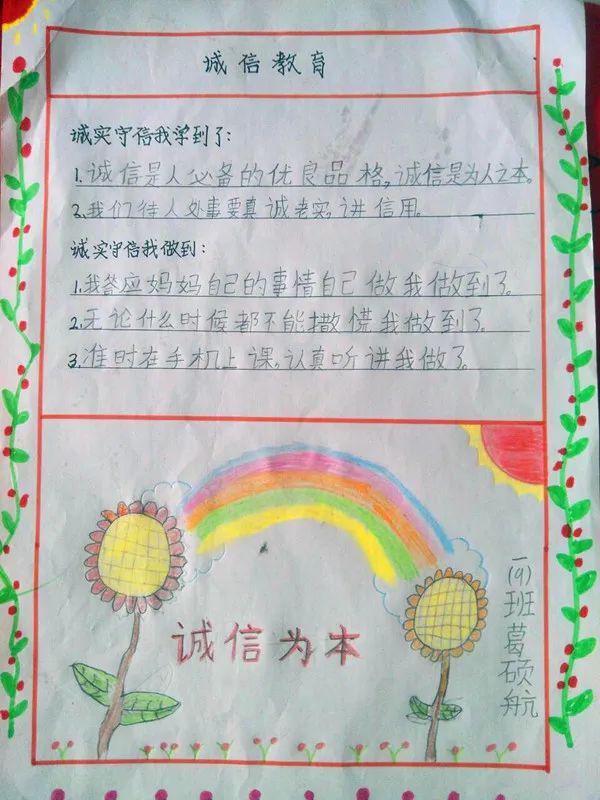 诚信教育
诚实守信我学到了:
1.诚信是人必备的优良品格,诚信是为人之本。
2.我们待人处事要真诚老实,讲信用。
诚实守信我做到:
1.我答应妈妈自己的事情自己做我做到了。
2.无论什么时候都不能撒慌我做到了。
3.准时在手机上课,认真听讲我做了。
诚信为本
一(9)班葛硕航